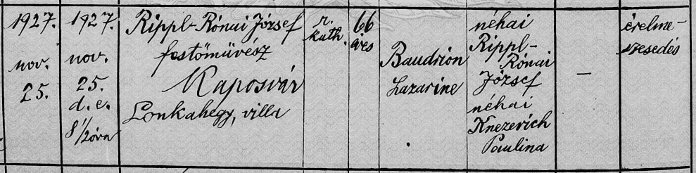 1927.
nov.
25.
1927.
nov.
25.
d.e.
8 1/2 óra
Rippl-Rónai József
festőművész
Kaposvár
Lonkahegy, villa
r.
kath.
66
éves
Baudrion
Lazarine
néhai
Rippl-
Rónai
József
néhai
Knezevich
Paulina
—
érelme-
szesedés